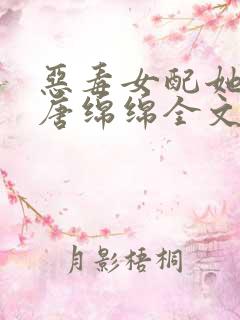 惡毒女配她
唐绵绵全文
月影梧桐